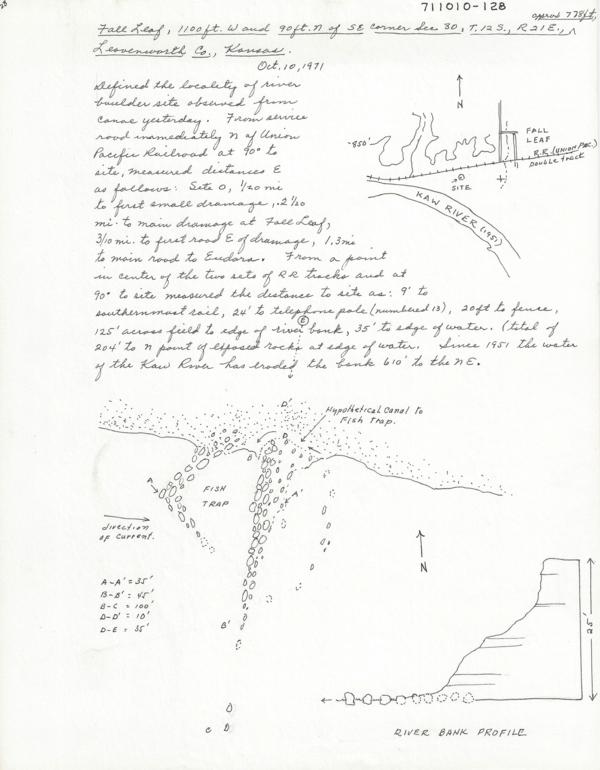 711010-128
Fall Leaf, 1100 ft. W and 90 ft. N of SE corner Sec 30, T. 12 S., R 21 E., approx 778 ft,
Leavenworth Co., Kansas.
Oct. 10, 1971
Defined the locality of river
boulder site observed from
canoe yesterday. From service
road immediately N of Union
Pacific Railroad at 90° to
site, measured distances E
as follows: Site 0, 1/20 mi
to first small drainage, .2 1/20
mi. to main drainage at Fall Leaf,
3/10 mi. to first road E of drainage, 1.3 mi
to main road to Eudora. From a point
in center of the two sets of RR tracks and at
90° to site measured the distance to site as: 9' to
southernmost rail, 24' to telephone pole (numbered 13), 20 ft to fence,
125' across field to edge of river bank, 35' to edge of water. (total of
204' to N point of exposed rocks at edge of water. Since 1951 the water
of the Kaw River has eroded the bank 610' to the NE.
N
~850'
FALL
LEAF
R.R. (UNION PAC.)
DOUBLE TRACT
SITE
KAW RIVER (1951)
E
D'
Hypothetical Canal to
Fish Trap.
D
A
FISH
TRAP
A'
direction
of current.
N
A-A' = 35'
B-B' = 45'
B-C = 100'
D-D' = 10'
D-E = 35'
B'
C
25'
RIVER BANK PROFILE